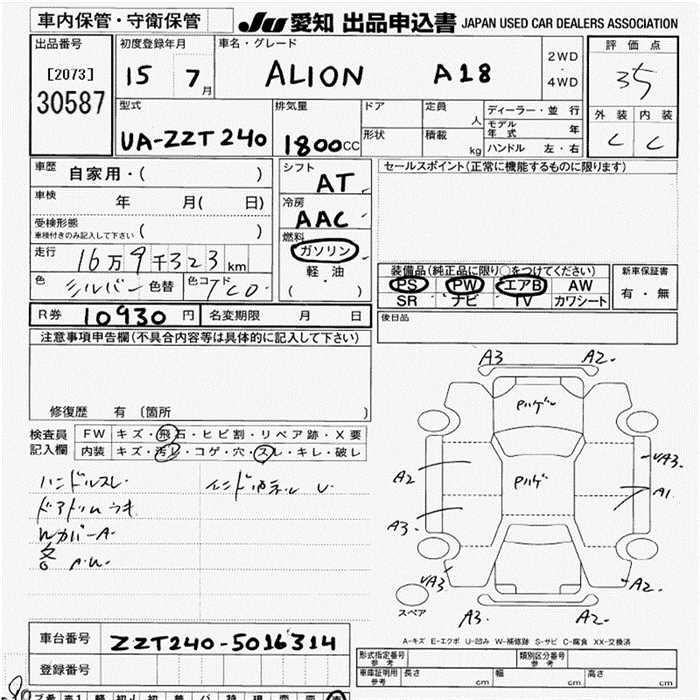 車内保管・守衛保管
JU 愛知 出品申込書 JAPAN USED CAR DEALERS ASSOCIATION
出品番号
[2073]
30587
初度登録年月
15 7月
車名・グレード
ALION A18
2WD
・
4WD
評価点
35
外装 内装
C C
型式
UA-ZZT240
排気量
1800CC
ドア
形状
定員
人
積載
kg
ディーラー・並行
モデル年式 年
ハンドル 左・右
車歴 自家用・( )
車検 年 月( 日)
受検形態
車検付きのみ記入して下さい ( )
走行 16万9千323km
色 シルバー 色替 色コード 1C0
シフト
AT
冷房
AAC
燃料
ガソリン
軽油
( ・ )
セールスポイント(正常に機能するものに限ります)
装備品(純正品に限り○をつけてください)
PS PW エアB AW
SR ナビ TV カワシート
新車保証書
有・無
R券 10930円 名変期限 月 日
後日品
注意事項申告欄(不具合内容等は具体的に記入して下さい)
修復歴 有 (箇所 )
検査員
記入欄
FW キズ・飛石・ヒビ割・リペア跡・X要
内装 キズ・汚レ・コゲ・穴・スレ・キレ・破レ
ハンドルスレ
ドアトリムウキ
A3 A2
Pハゲ
A2 Pハゲ A3 A1
A3
A3 A2
スペア
A3 A2
A-キズ E-エクボ U-凹み W-補修跡 S-サビ C-腐食 XX-交換済
車台番号 ZZT240-5016314
登録番号
形式指定番号
参考
類別区分番号
参考
車庫証明用
参考
長さ cm 幅 cm 高さ cm